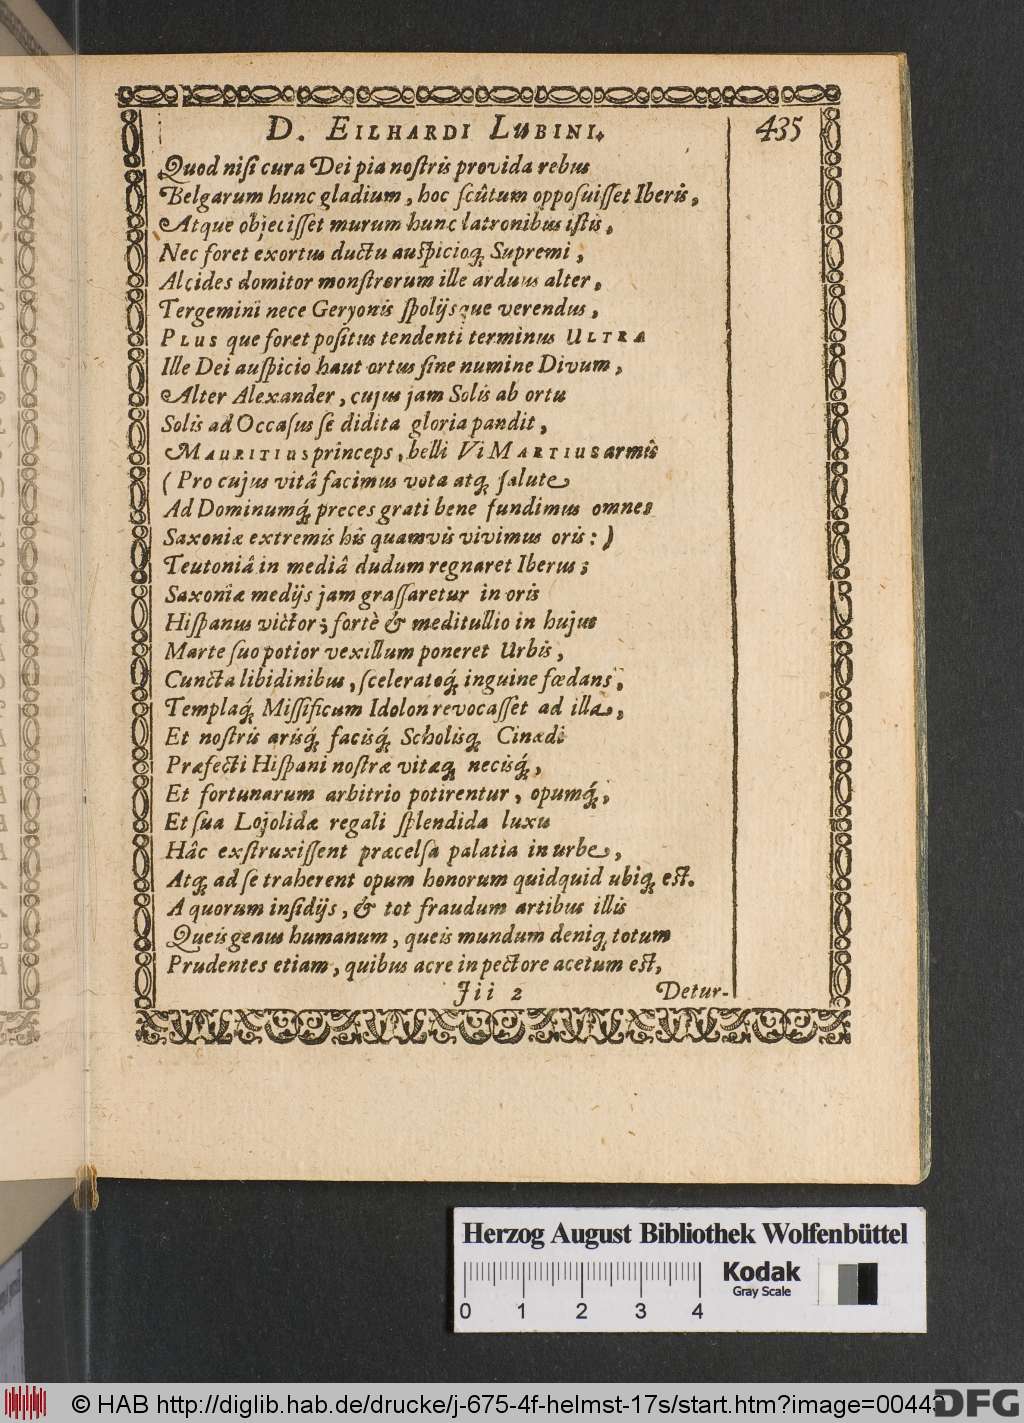 D. EILHARDI LUBINI. 435
Quod niſi cura Dei pia noſtris provida rebus
Belgarum hunc gladium, hoc ſcûtum oppoſuiſſet Iberis,
Atque objeciſſet murum hunc latronibus iſtis,
Nec foret exortus ductu auſpicioq́; Supremi,
Alcides domitor monſtrorum ille arduus alter,
Tergemini nece Geryonis ſpolijsque verendus,
PLUS que foret poſitus tendenti terminus ULTRA
Ille Dei auſpicio haut ortus ſine numine Divum,
Alter Alexander, cujus jam Solis ab ortu
Solis ad Occaſus ſe didita gloria pandit,
MAURITIUS princeps, belli Vi MARTIUS armis
(Pro cujus vitâ facimus vota atq; ſalute
Ad Dominumq́; preces grati bene fundimus omnes
Saxoniæ extremis his quamvis vivimus oris:)
Teutoniâ in mediâ dudum regnaret Iberus;
Saxoniæ medijs jam graſſaretur in oris
Hiſpanus victor; fortè & meditullio in hujus
Marte ſuo potior vexillum poneret Urbis,
Cuncta libidinibus, ſceleratoq́; inguine fœdans,
Templaq́; Miſſificum Idolon revocaſſet ad illa,
Et noſtris arisq́; facisq́; Scholisq; Cinædi
Præfecti Hiſpani noſtræ vitæq; necisq́;,
Et fortunarum arbitrio potirentur, opumq́;,
Et ſua Lojolidæ regali ſplendida luxu
Hâc exſtruxiſſent præcelſa palatia in urbe,
Atq; ad ſe traherent opum honorum quidquid ubiq; eſt.
A quorum inſidijs, & tot fraudum artibus illis
Queis genus humanum, queis mundum deniq; totum
Prudentes etiam, quibus acre in pectore acetum eſt,
Iii 2 Detur-
Herzog August Bibliothek Wolfenbüttel
Kodak
Gray Scale
0 1 2 3 4
© HAB http://diglib.hab.de/drucke/j-675-4f-helmst-17s/start.htm?image=00443
DFG